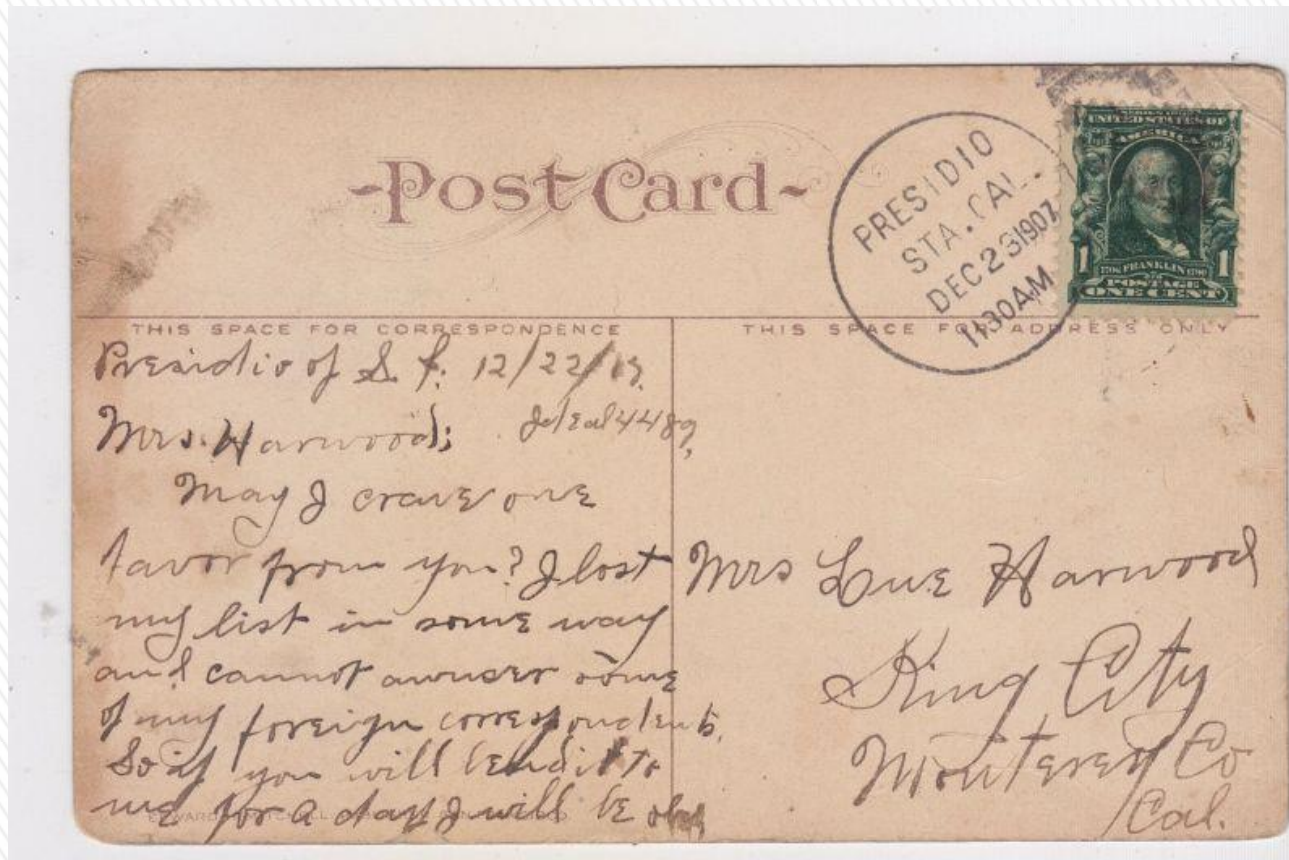 -Post Card-
PRESIDIO
STA. CAL.
DEC 23 1907
1130AM
SERIES 1902
UNITED STATES OF
AMERICA
1 1
1706 FRANKLIN 1790
POSTAGE
ONE CENT
THIS SPACE FOR CORRESPONDENCE
Presidio of S. F. 12/22/
Mrs. Harwood;
May I crave one
favor from you? I lost
my list in some way
and cannot answer some
of my foreign correspondents.
So if you will lend it to
me for a day I will be
THIS SPACE FOR ADDRESS ONLY
Mrs Harwood
King City
Monterey Co
Cal.